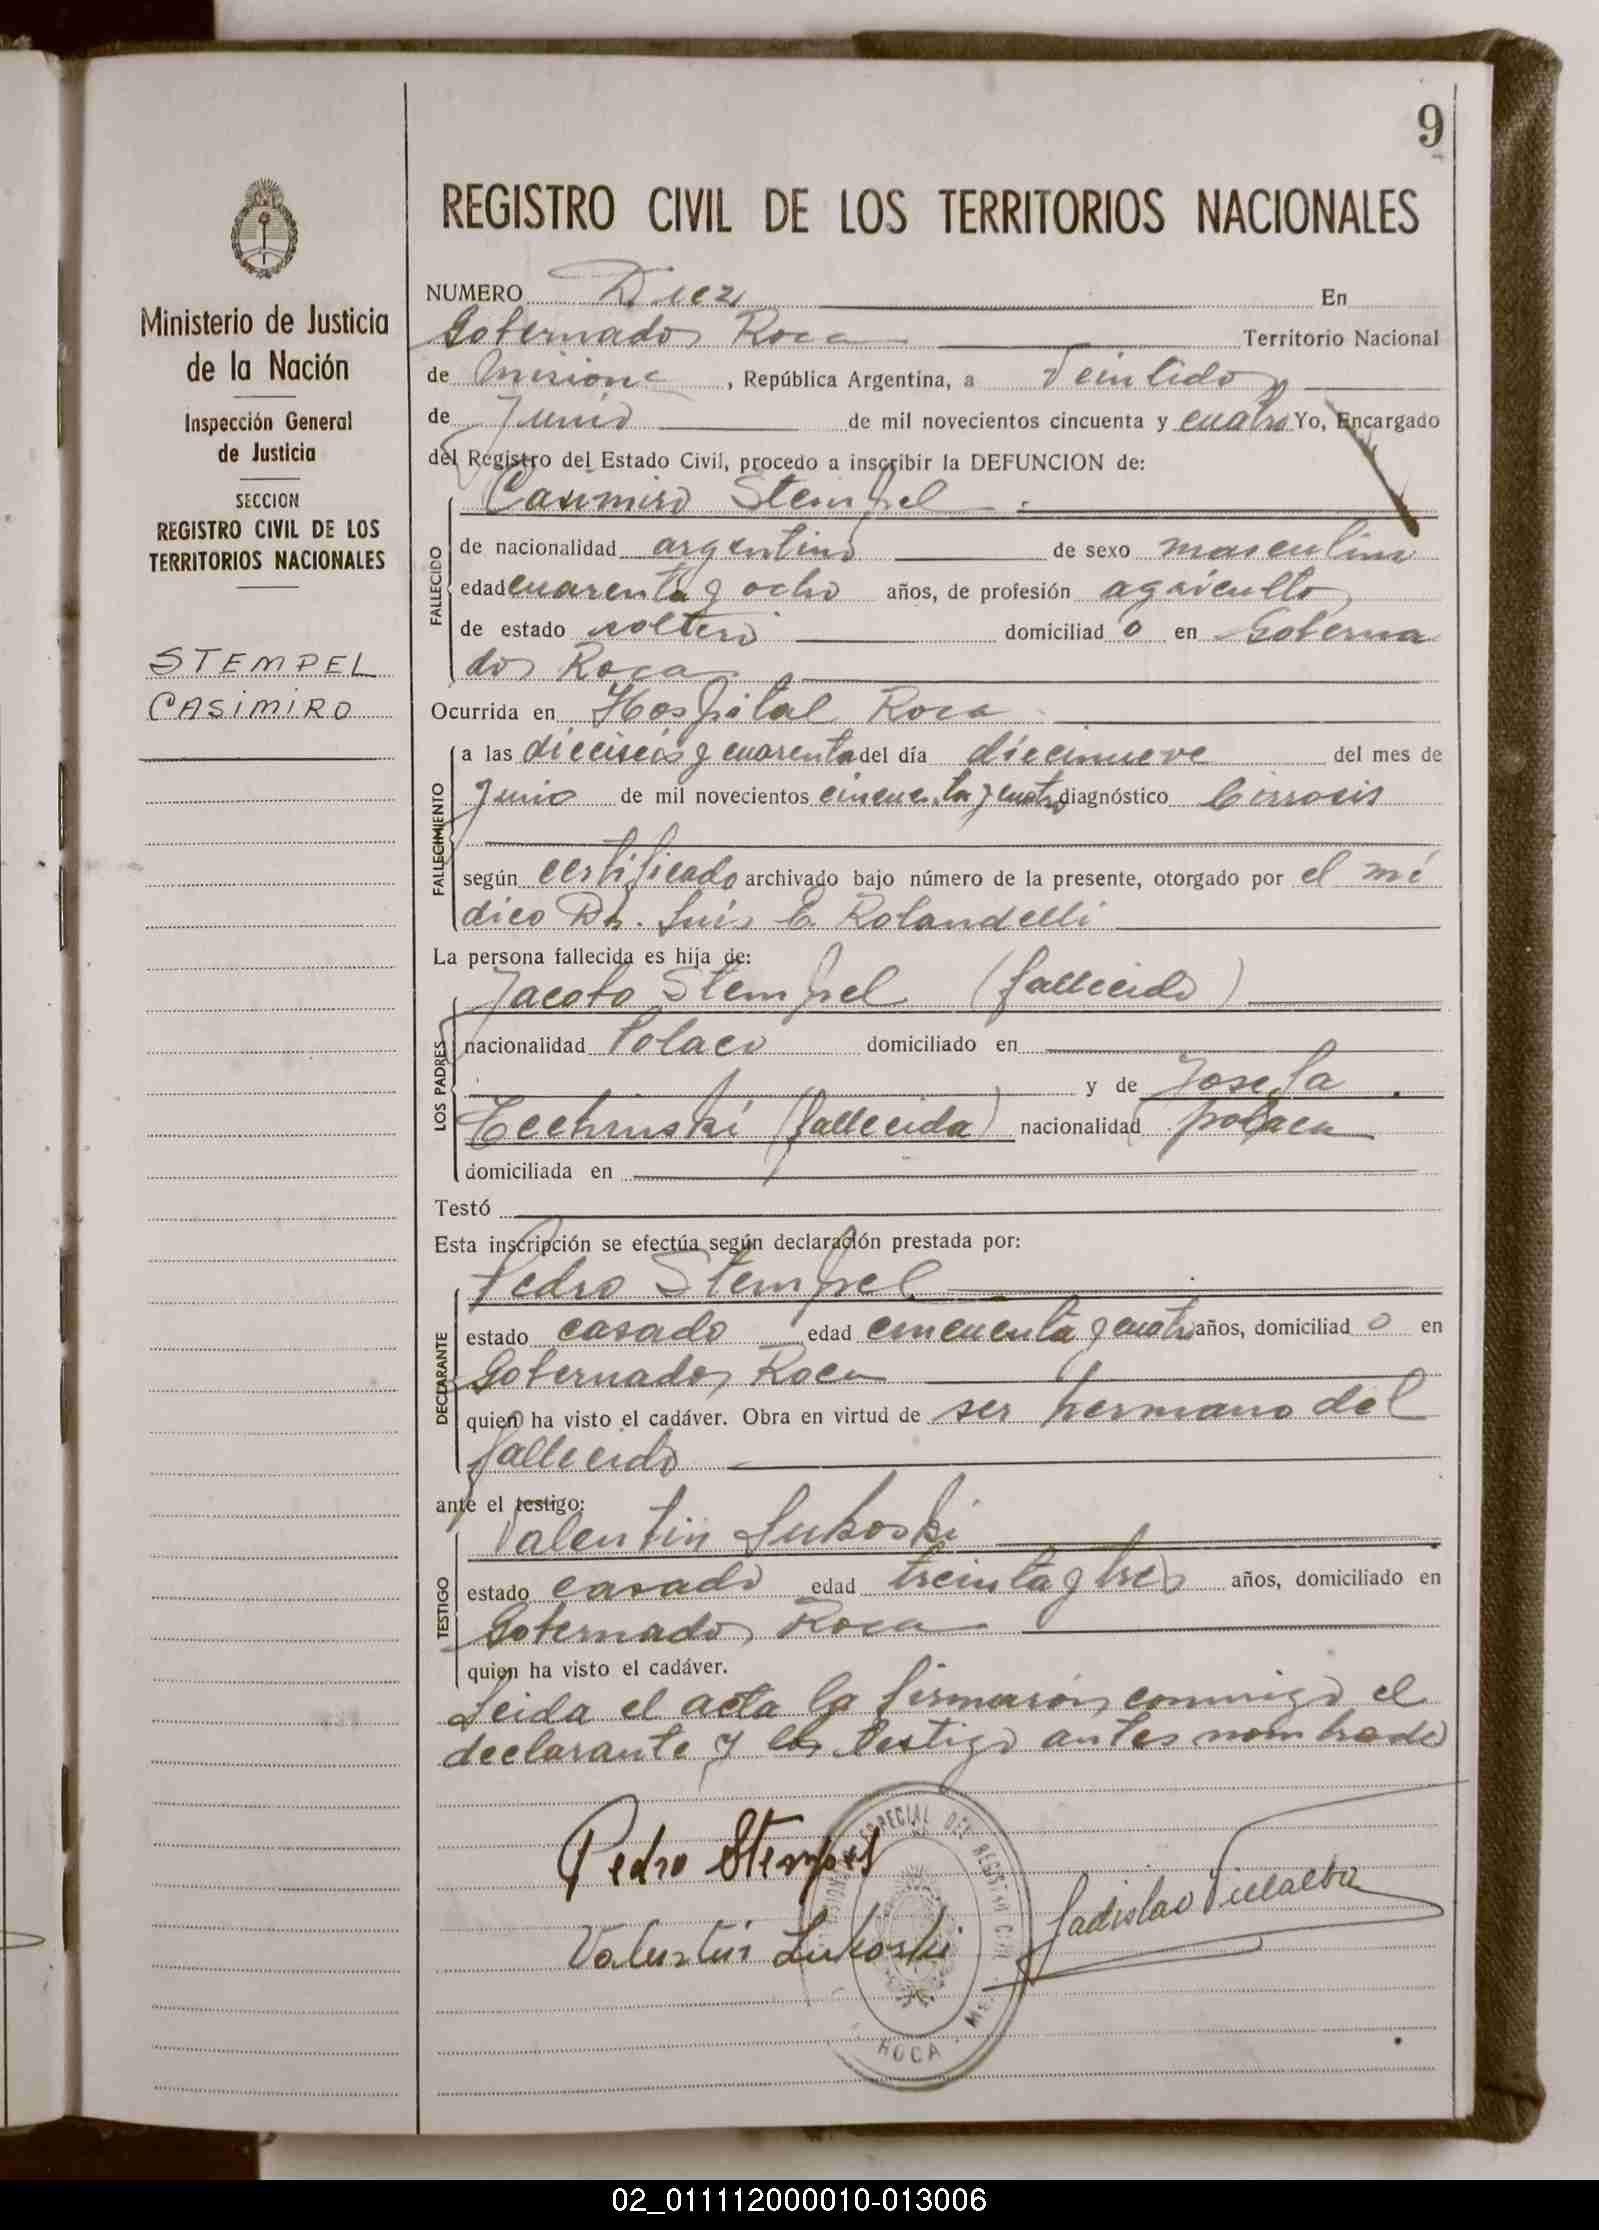 9
REGISTRO CIVIL DE LOS TERRITORIOS NACIONALES
Ministerio de Justicia
de la Nación
Inspección General
de Justicia
SECCION
REGISTRO CIVIL DE LOS
TERRITORIOS NACIONALES
STEMPEL
CASIMIRO
NUMERO Diez En
Gobernador Roca Territorio Nacional
de Misiones, República Argentina, a Veintidos
de Junio de mil novecientos cincuenta y cuatro Yo, Encargado
del Registro del Estado Civil, procedo a inscribir la DEFUNCION de:
Casimiro Stempel
FALLECIDO
de nacionalidad argentino de sexo masculino
edad cuarenta y ocho años, de profesión agricultor
de estado soltero domiciliad o en Goberna
dor Roca
Ocurrida en Hospital Roca
FALLECIMIENTO
a las dieciseis y cuarenta del día diecinueve del mes de
Junio de mil novecientos cincuenta y cuatro diagnóstico Cirrosis
según certificado archivado bajo número de la presente, otorgado por el mé
dico Dr. Luis E. Rolandelli
La persona fallecida es hija de:
LOS PADRES
Jacobo Stempel (fallecido)
nacionalidad Polaco domiciliado en
y de Josefa
(fallecida) nacionalidad polaca
domiciliada en
Testó
Esta inscripción se efectúa según declaración prestada por:
DECLARANTE
Pedro Stempel
estado casado edad cincuenta y cuatro años, domiciliad o en
Gobernador Roca
quien ha visto el cadáver. Obra en virtud de ser hermano del
fallecido
ante el testigo:
TESTIGO
Valentin Lukoski
estado casado edad treinta y tres años, domiciliado en
Gobernador Roca
quien ha visto el cadáver.
Leida el acta la firmaron conmigo el
declarante y el testigo antes nombrado
Pedro Stempel
Valentin Lukoski
Ladislao Villalba
ESPECIAL DEL REGISTRO CIVIL
ROCA
02_011112000010-013006